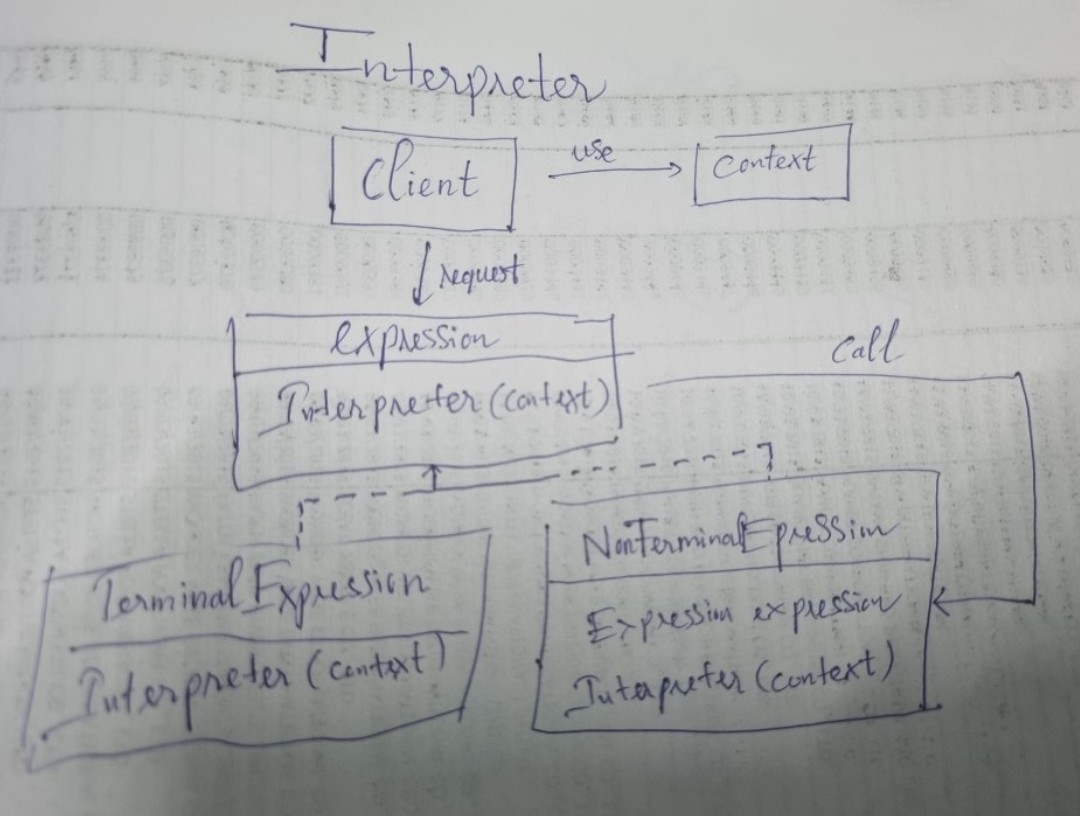 Interpreter
Client
use
Context
request
expression
Interpreter (context)
Call
Terminal Expression
Interpreter (context)
NonTerminalEpression
Expression expression
Interpreter (context)